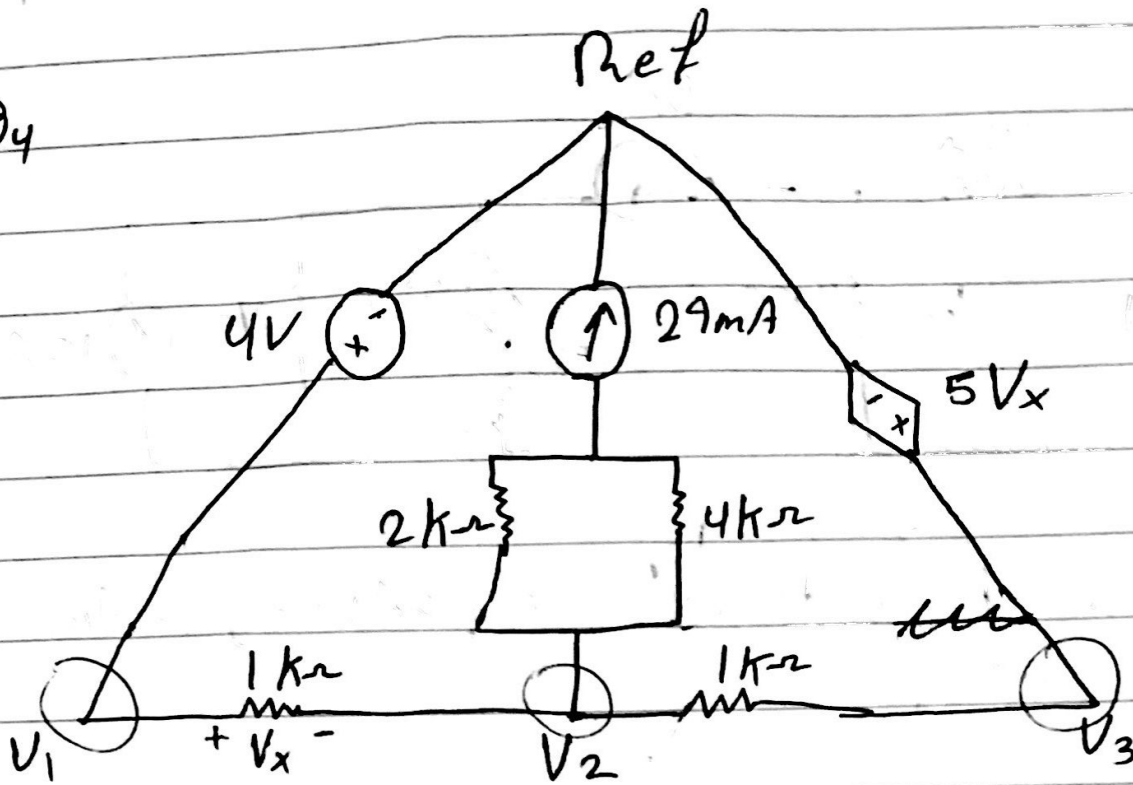 Ref
Q4
4V
29mA
5Vx
2kΩ
4kΩ
1kΩ
1kΩ
+ Vx -
V1
V2
V3